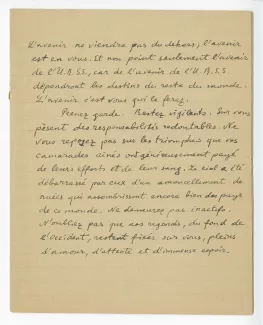 L'avenir ne viendra pas du dehors; l'avenir
est en vous. Et non point seulement l'avenir
de l'U.R.S.S., car de l'avenir de l'U.R.S.S
dépendront les destins du reste du monde.
L'avenir c'est vous qui le ferez.
Prenez garde. Restez vigilants. Sur vous
pèsent des responsabilités redoutables. Ne
vous reposez pas sur les triomphes que vos
camarades aînés ont généreusement payé
de leurs efforts et de leur sang. Le ciel a été
débarrassé par eux d'un amoncellement de
nuées qui assombrissent encore bien des pays
de ce monde. Ne demeurez pas inactifs.
N'oubliez pas que nos regards, du fond de
l'Occident, restent fixés sur vous, pleins
d'amour, d'attente et d'immense espoir.